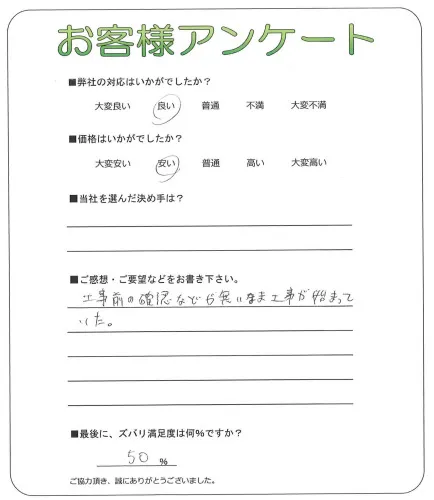 お客様アンケート
■弊社の対応はいかがでしたか？
大変良い 良い 普通 不満 大変不満
■価格はいかがでしたか？
大変安い 安い 普通 高い 大変高い
■当社を選んだ決め手は？
■ご感想・ご要望などをお書き下さい。
工事前の確認などが無いまま工事が始まって
いた。
■最後に、ズバリ満足度は何％ですか？
50 %
ご協力頂き、誠にありがとうございました。